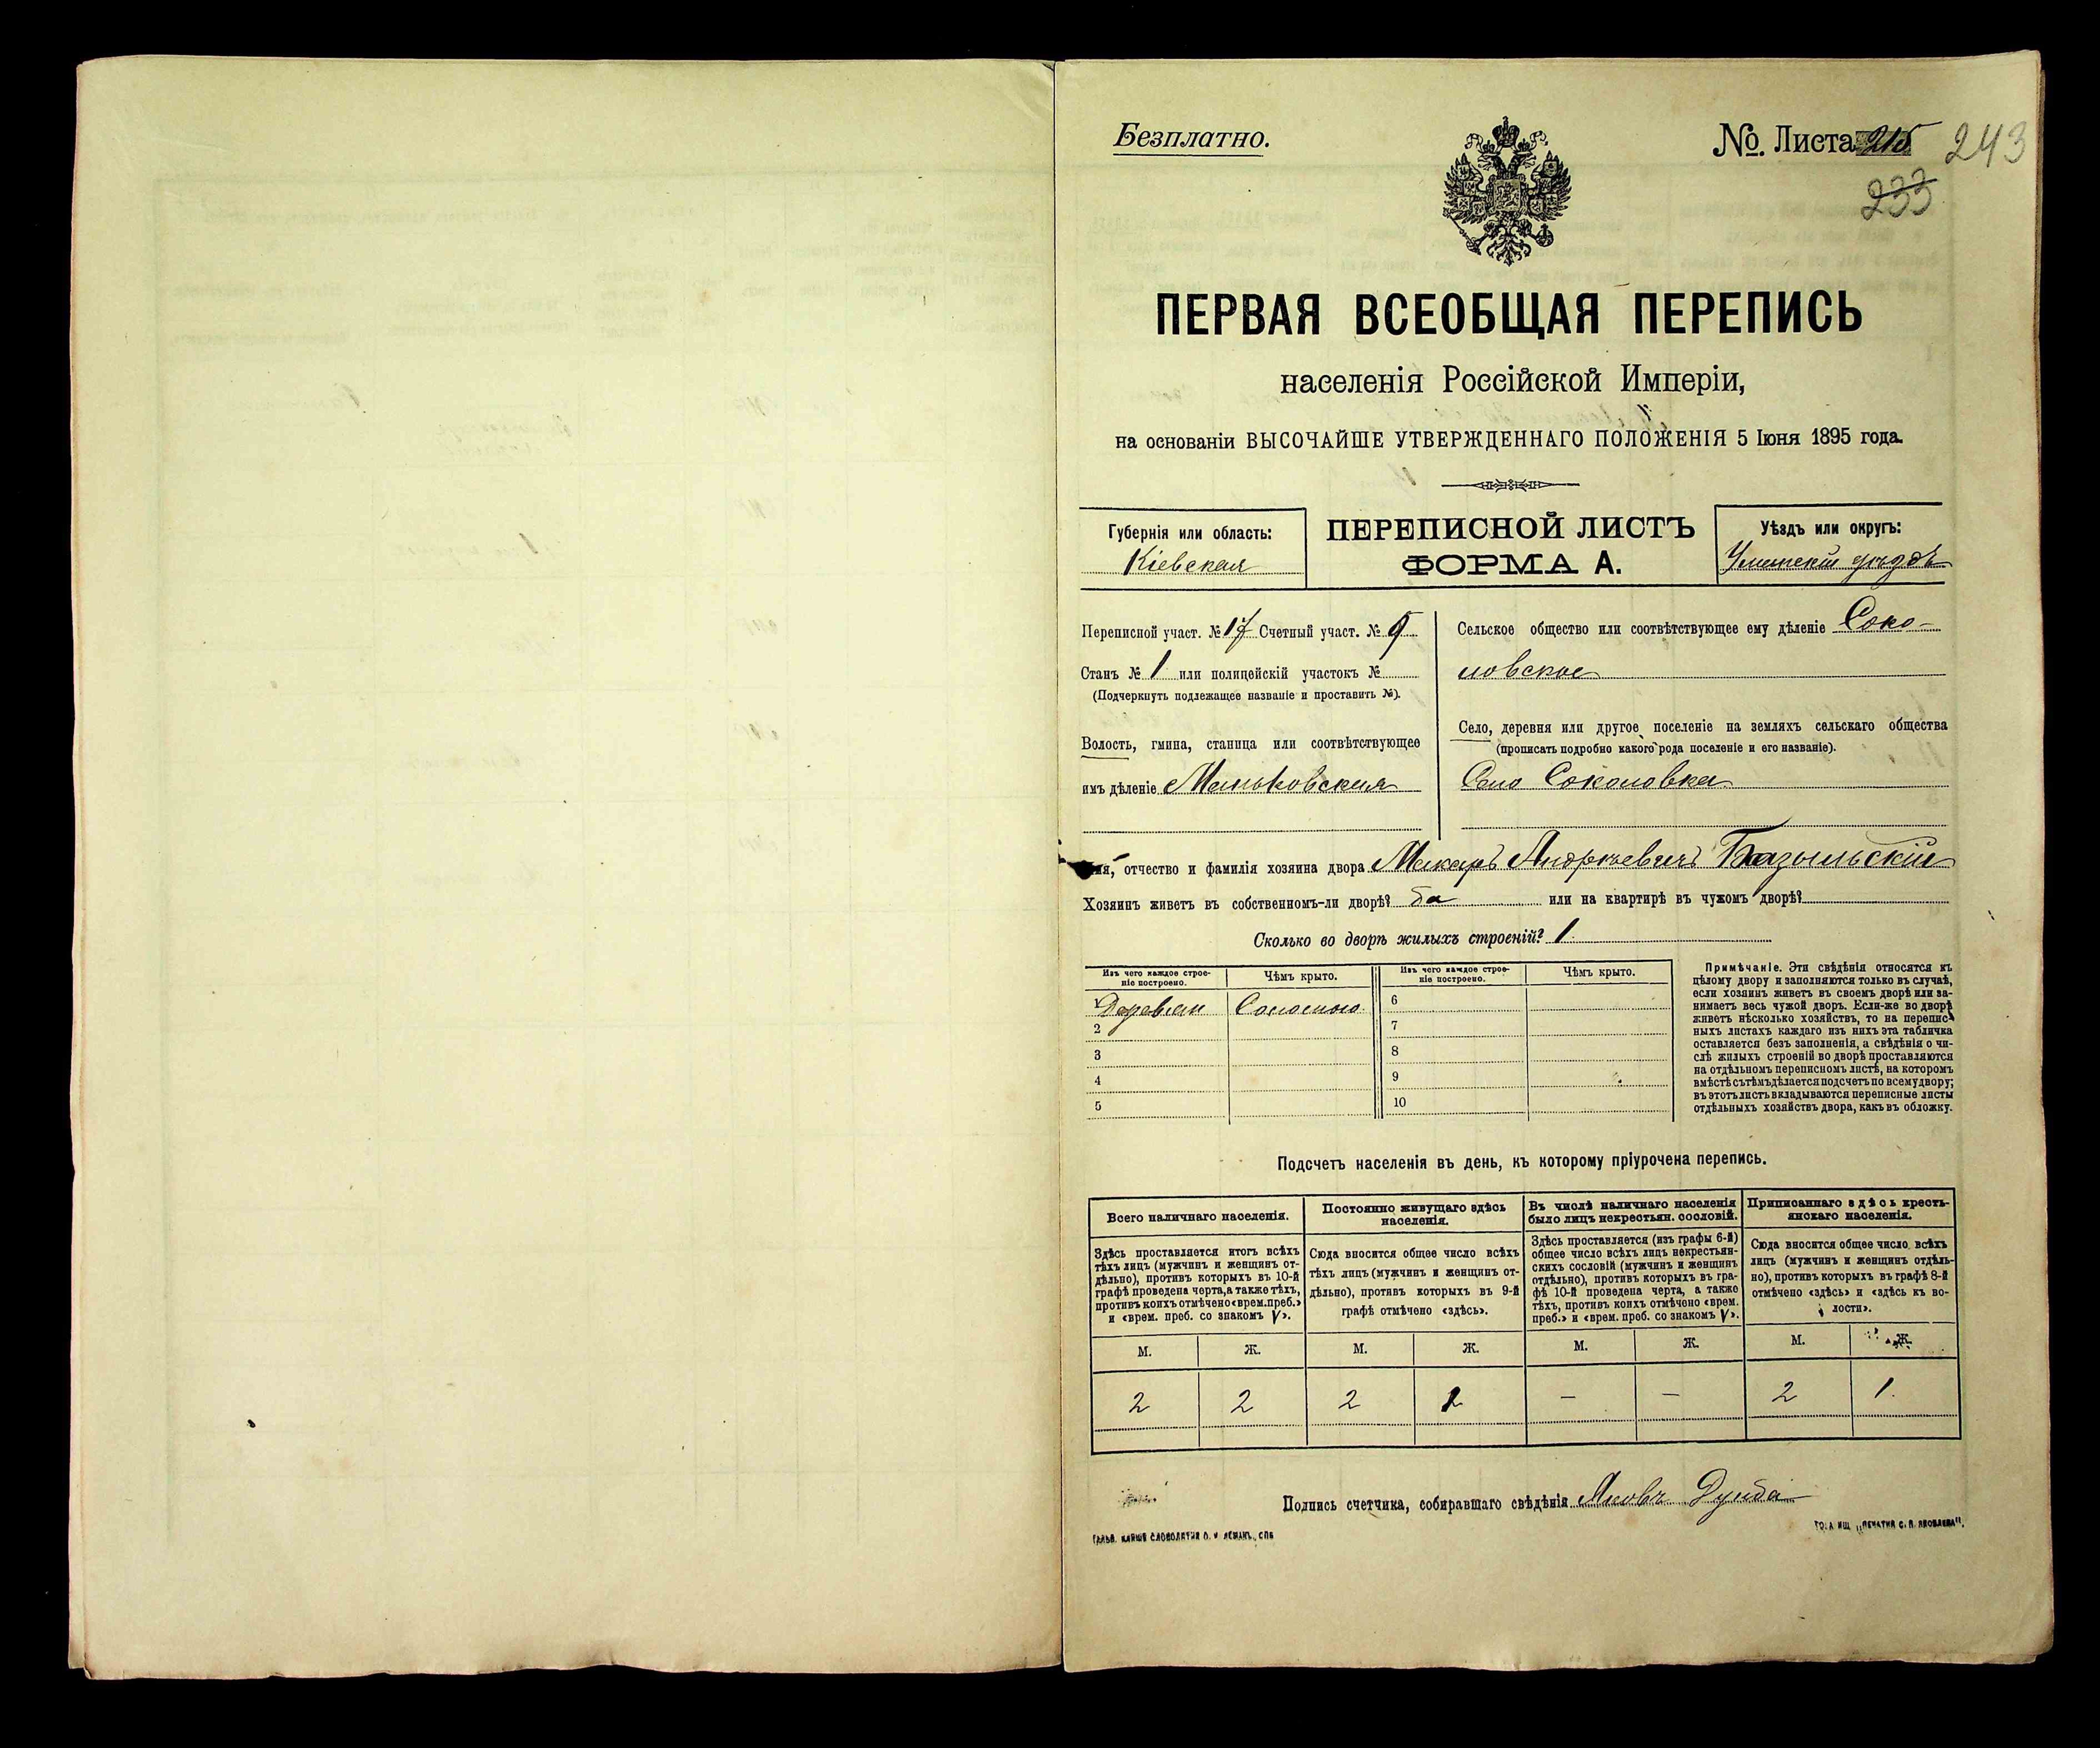 Безплатно.
No. Листа 215 243
233
ПЕРВАЯ ВСЕОБЩАЯ ПЕРЕПИСЬ
населенія Россійской Имперіи,
на основаніи ВЫСОЧАЙШЕ УТВЕРЖДЕННАГО ПОЛОЖЕНІЯ 5 Іюня 1895 года.
Губернія или область:
Кіевская
ПЕРЕПИСНОЙ ЛИСТЪ
ФОРМА А.
Уѣздъ или округъ:
Уманскій уѣздъ
Переписной участ. № 17 Счетный участ. № 9
Станъ № 1 или полицейскій участокъ №
(Подчеркнуть подлежащее названіе и проставить №).
Волость, гмина, станица или соотвѣтствующее
имъ дѣленіе Маньковская
Сельское общество или соотвѣтствующее ему дѣленіе Соко-
ловское
Село, деревня или другое поселеніе на земляхъ сельскаго общества
(прописать подробно какого рода поселеніе и его названіе).
Село Соколовка
Имя, отчество и фамилія хозяина двора Макаръ Андреевичъ Базыльскій
Хозяинъ живетъ въ собственномъ-ли дворѣ? да или на квартирѣ въ чужомъ дворѣ?
Сколько во дворѣ жилыхъ строеній? 1
Изъ чего каждое строе-
ніе построено.
Чѣмъ крыто.
Изъ чего каждое строе-
ніе построено.
Чѣмъ крыто.
1 Деревян Соломою 6
2 7
3 8
4 9
5 10
Примѣчаніе. Эти свѣдѣнія относятся къ
цѣлому двору и заполняются только въ случаѣ,
если хозяинъ живетъ въ своемъ дворѣ или за-
нимаетъ весь чужой дворъ. Если-же во дворѣ
живетъ нѣсколько хозяйствъ, то на перепис-
ныхъ листахъ каждаго изъ нихъ эта табличка
оставляется безъ заполненія, а свѣдѣнія о чи-
слѣ жилыхъ строеній во дворѣ проставляются
на отдѣльномъ переписномъ листѣ, на которомъ
вмѣстѣ съ тѣмъ дѣлается подсчетъ по всему двору;
въ этотъ листъ вкладываются переписные листы
отдѣльныхъ хозяйствъ двора, какъ въ обложку.
Подсчетъ населенія въ день, къ которому пріурочена перепись.
Всего наличнаго населенія.
Здѣсь проставляется итогъ всѣхъ
тѣхъ лицъ (мужчинъ и женщинъ от-
дѣльно), противъ которыхъ въ 10-й
графѣ проведена черта, а также тѣхъ,
противъ коихъ отмѣчено «врем. преб.»
и «врем. преб. со знакомъ V».
Постоянно живущаго здѣсь
населенія.
Сюда вносится общее число всѣхъ
тѣхъ лицъ (мужчинъ и женщинъ от-
дѣльно), противъ которыхъ въ 9-й
графѣ отмѣчено «здѣсь».
Въ числѣ наличнаго населенія
было лицъ некрестьян. сословій.
Здѣсь проставляется (изъ графы 6-й)
общее число всѣхъ лицъ некрестьян-
скихъ сословій (мужчинъ и женщинъ
отдѣльно), противъ которыхъ въ гра-
фѣ 10-й проведена черта, а также
тѣхъ, противъ коихъ отмѣчено «врем.
преб.» и «врем. преб. со знакомъ V».
Приписаннаго здѣсь кресть-
янскаго населенія.
Сюда вносится общее число всѣхъ
лицъ (мужчинъ и женщинъ отдѣль-
но), противъ которыхъ въ графѣ 8-й
отмѣчено «здѣсь» и «здѣсь къ во-
лости».
М. Ж. М. Ж. М. Ж. М. Ж.
2 2 2 2 — — 2 1
Подпись счетчика, собиравшаго свѣдѣнія Яковъ Дзюба